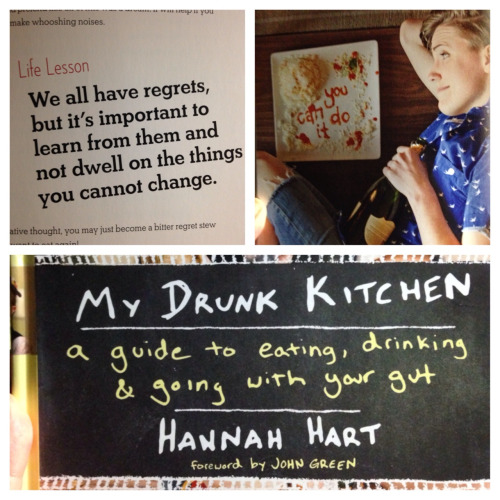 make whooshing noises.
Life Lesson
We all have regrets,
but it's important to
learn from them and
not dwell on the things
you cannot change.
ative thought, you may just become a bitter regret stew
you
can do
it
MY DRUNK KITCHEN
a guide to eating, drinking
& going with your gut
HANNAH HART
foreword by JOHN GREEN